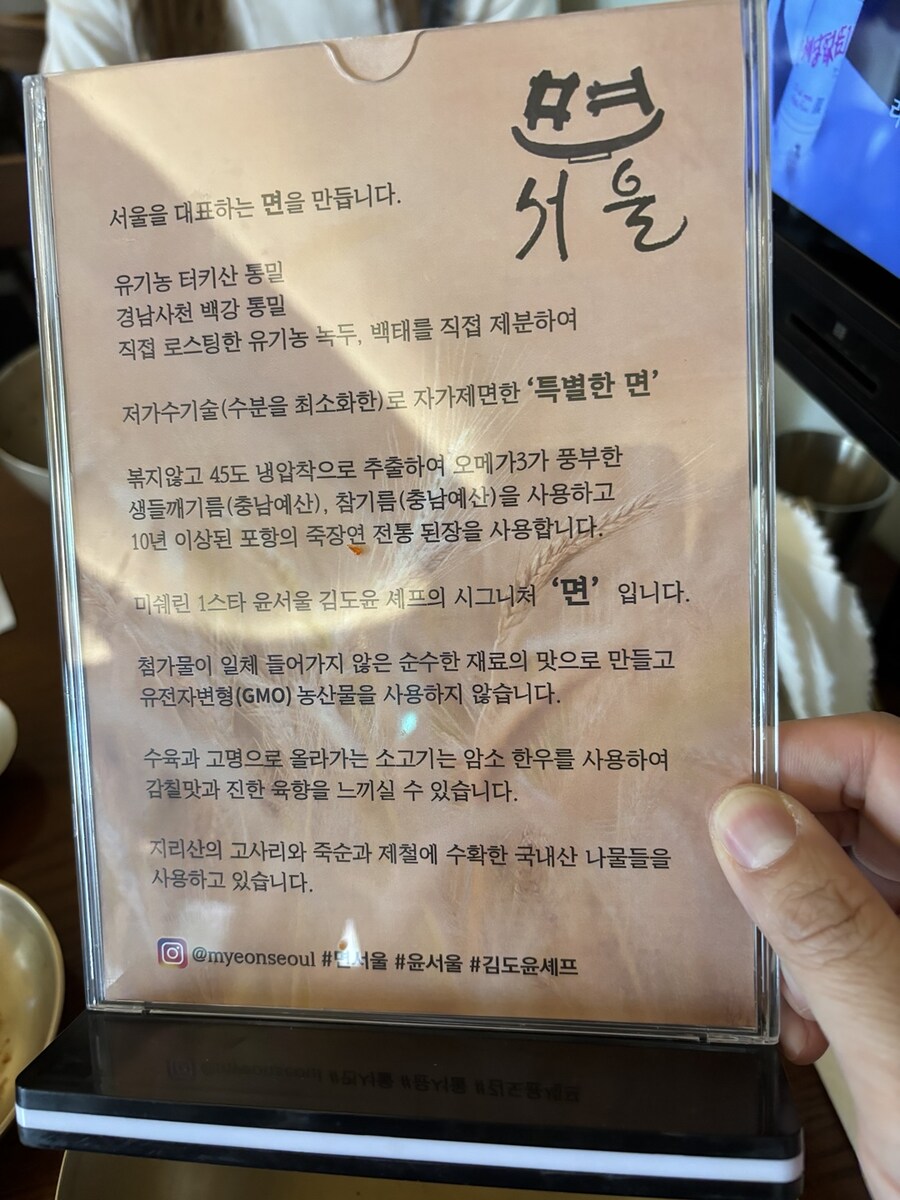 면
서울
서울을 대표하는 면을 만듭니다.
유기농 터키산 통밀
경남사천 백강 통밀
직접 로스팅한 유기농 녹두, 백태를 직접 제분하여
저가수기술(수분을 최소화한)로 자가제면한 ‘특별한 면’
볶지않고 45도 냉압착으로 추출하여 오메가3가 풍부한
생들깨기름(충남예산), 참기름(충남예산)을 사용하고
10년 이상된 포항의 죽장연 전통 된장을 사용합니다.
미쉐린 1스타 윤서울 김도윤 셰프의 시그니처 ‘면’ 입니다.
첨가물이 일체 들어가지 않은 순수한 재료의 맛으로 만들고
유전자변형(GMO) 농산물을 사용하지 않습니다.
수육과 고명으로 올라가는 소고기는 암소 한우를 사용하여
감칠맛과 진한 육향을 느끼실 수 있습니다.
지리산의 고사리와 죽순과 제철에 수확한 국내산 나물들을
사용하고 있습니다.
@myeonseoul #면서울 #윤서울 #김도윤셰프